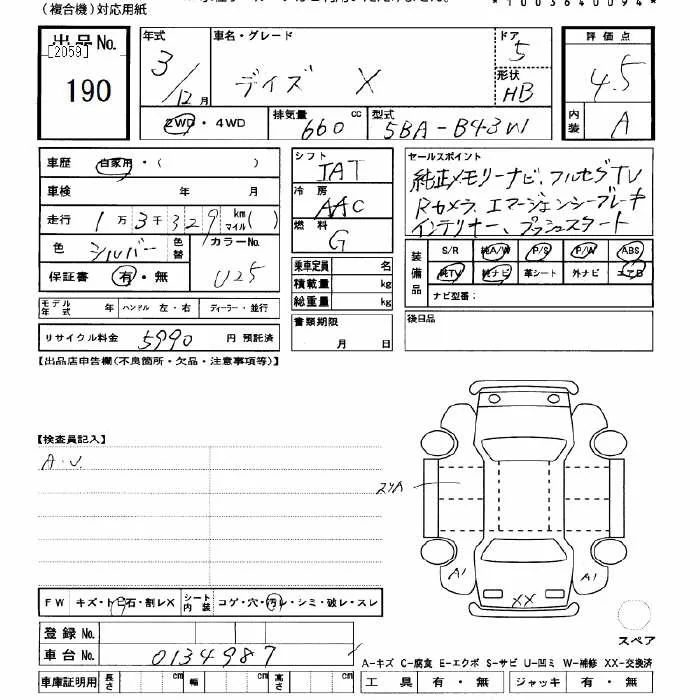 (複合機)対応用紙
*1003640094*
出品No.
[2059]
190
年式
3/12月
車名・グレード
デイズ X
ドア
5
形状
HB
評価点
4.5
内装
A
2WD・4WD
排気量
660 cc
型式
5BA-B43W
車歴 自家用・( )
車検 年 月
走行 1万3千329 km マイル( )
色 シルバー 色替
カラーNo.
U25
保証書 有・無
モデル年式 年 ハンドル 左・右 ディーラー・並行
リサイクル料金 5990 円 預託済
シフト
IAT
冷房
AAC
燃料
G
乗車定員 名
積載量 kg
総重量 kg
書類期限
月 日
セールスポイント
純正メモリーナビ、フルセグTV
Rカメラ、エマージェンシーブレーキ
インテリキー、プッシュスタート
装備品
S/R 純A/W P/S P/W ABS
純TV 純ナビ 革シート 外ナビ エアB
ナビ型番:
後日品
【出品店申告欄(不良箇所・欠品・注意事項等)】
【検査員記入】
A・U
A1
A1
XX
FW キズ・トビ石・割レX シート内装 コゲ・穴・汚レ・シミ・破レ・スレ
登録No.
車台No. 0134987
車庫証明用 長さ cm 幅 cm 高さ cm
スペア
A-キズ C-腐食 E-エクボ S-サビ U-凹ミ W-補修 XX-交換済
工具 有・無 ジャッキ 有・無